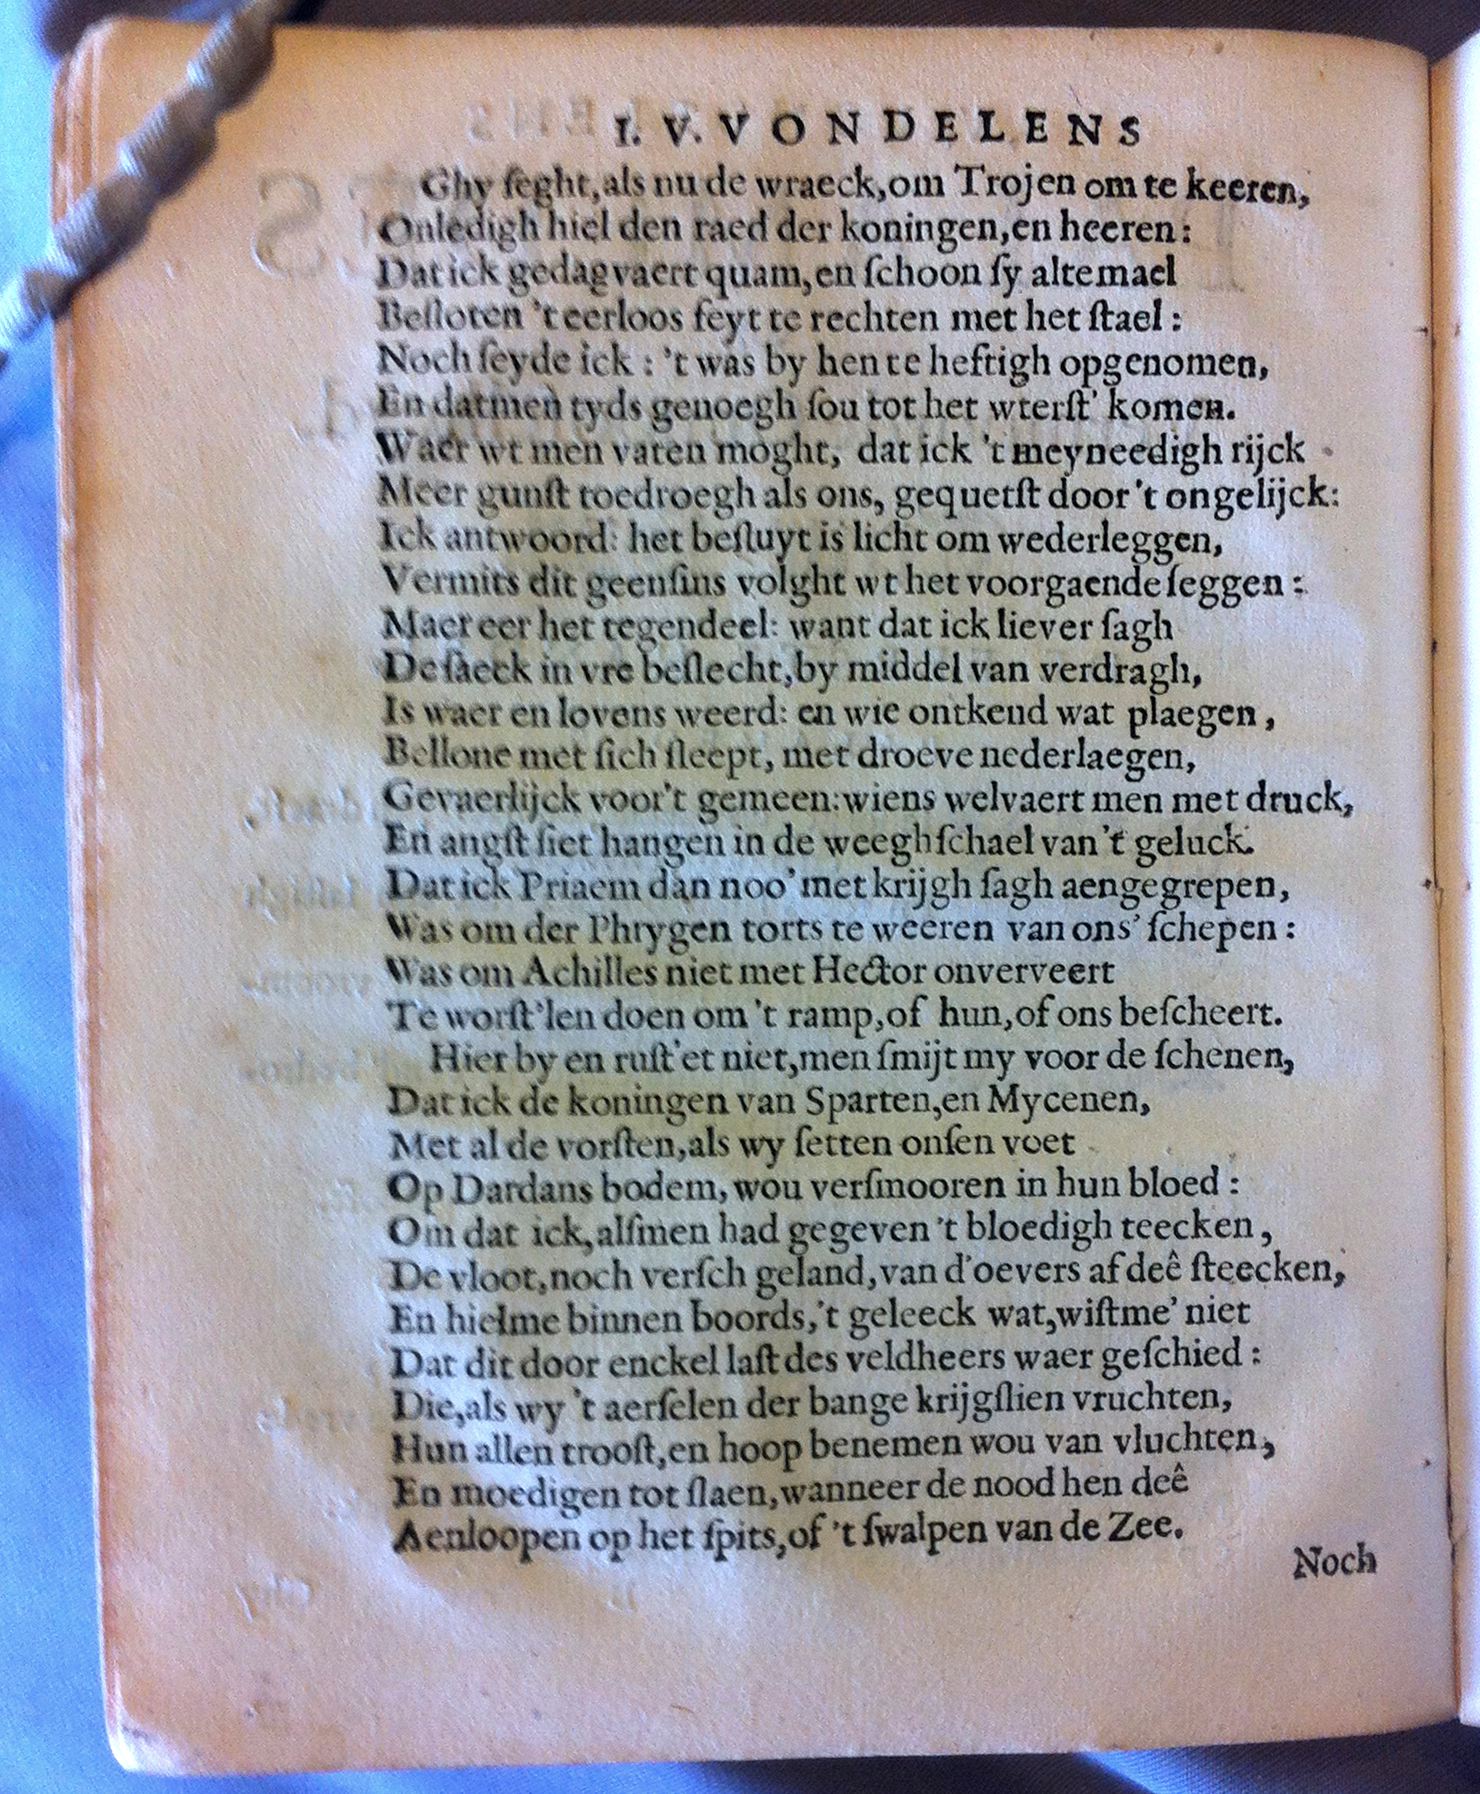 I. V. VONDELENS
Ghy ſeght, als nu de wraeck, om Trojen om te keeren,
Onledigh hiel den raed der koningen, en heeren:
Dat ick gedagvaert quam, en ſchoon ſy altemael
Beſloten 't eerloos feyt te rechten met het ſtael:
Noch ſeyde ick: 't was by hen te heftigh opgenomen,
En datmen tyds genoegh ſou tot het wterſt' komen.
Waer wt men vaten moght, dat ick 't meyneedigh rijck
Meer gunſt toedroegh als ons, gequetſt door 't ongelijck:
Ick antwoord: het beſluyt is licht om wederleggen,
Vermits dit geenſins volght wt het voorgaende ſeggen:
Maer eer het tegendeel: want dat ick liever ſagh
De ſaeck in vre beſlecht, by middel van verdragh,
Is waer en lovens weerd: en wie ontkend wat plaegen,
Bellone met ſich ſleept, met droeve nederlaegen,
Gevaerlijck voor't gemeen: wiens welvaert men met druck,
En angſt ſiet hangen in de weeghſchael van 't geluck.
Dat ick Priaem dan noo' met krijgh ſagh aengegrepen,
Was om der Phrygen torts te weeren van ons' ſchepen:
Was om Achilles niet met Hector onverveert
Te worſt'len doen om 't ramp, of hun, of ons beſcheert.
Hier by en ruſt'et niet, men ſmijt my voor de ſchenen,
Dat ick de koningen van Sparten, en Mycenen,
Met al de vorſten, als wy ſetten onſen voet
Op Dardans bodem, wou verſmooren in hun bloed:
Om dat ick, alſmen had gegeven 't bloedigh teecken,
De vloot, noch verſch geland, van d'oevers af deê ſteecken,
En hielme binnen boords, 't geleeck wat, wiſtme' niet
Dat dit door enckel laſt des veldheers waer geſchied:
Die, als wy 't aerſelen der bange krijgſlien vruchten,
Hun allen trooſt, en hoop benemen wou van vluchten,
En moedigen tot ſlaen, wanneer de nood hen deê
Aenloopen op het ſpits, of 't ſwalpen van de Zee.
Noch